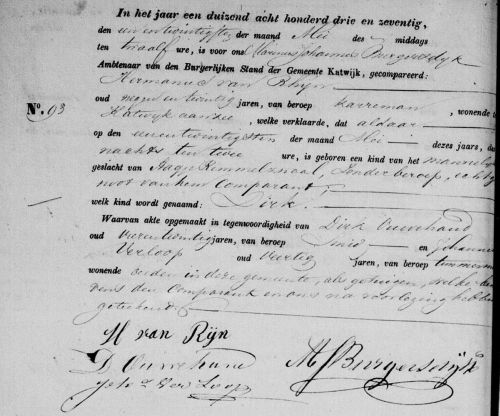 In het jaar een duizend acht honderd drie en zeventig,
den een en twintigsten der maand Mei des middags
ten twaalf ure, is voor ons Johannes Burgersdijk
Ambtenaar van den Burgerlijken Stand der Gemeente Katwijk, gecompareerd:
Hermanus van Rhijn
oud negen en twintig jaren, van beroep karreman, wonende te
No. 93
Katwijk aan zee, welke verklaarde, dat aldaar
op den een en twintigsten der maand Mei dezes jaars, des
nachts ten twee ure, is geboren een kind van het mannelijk
geslacht van Kimmelznaal, zonder beroep, echtge
noot van hem comparant
welk kind wordt genaamd: Dirk.
Waarvan akte opgemaakt in tegenwoordigheid van Dirk Ouwehand
oud jaren, van beroep Smid en Johannes
Verloop oud veertig jaren, van beroep timmerman
wonende beiden in deze gemeente, als getuigen, welke
dens den Comparant en ons na voorlezing hebben
geteekend
H van Rijn
D Ouwehand
Joh.s Ver Loop
Burgersdijk